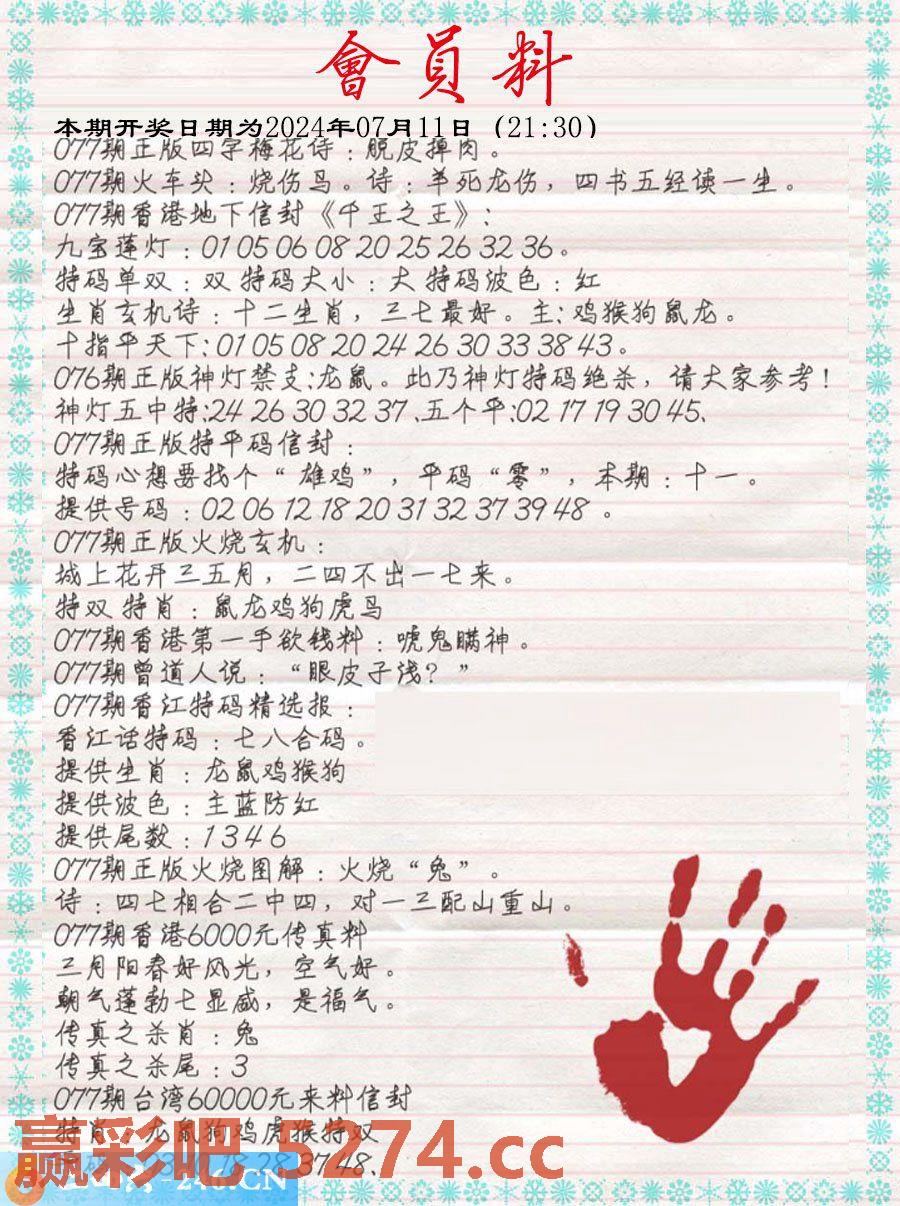 會員料
本期开奖日期为2024年07月11日（21:30）
077期正版四字梅花诗：脱皮掉肉。
077期火车头：烧伤鸟。诗：羊死龙伤，四书五经读一生。
077期香港地下信封《千王之王》：
九宝莲灯：01 05 06 08 20 25 26 32 36。
特码单双：双 特码大小：大 特码波色：红
生肖玄机诗：十二生肖，三七最好。主：鸡猴狗鼠龙。
十指平天下：01 05 08 20 24 26 30 33 38 43。
076期正版神灯禁支：龙鼠。此乃神灯特码绝杀，请大家参考！
神灯五中特：24 26 30 32 37、五个平：02 17 19 30 45、
077期正版特平码信封：
特码心想要找个“雄鸡”，平码“零”，本期：十一。
提供号码：02 06 12 18 20 31 32 37 39 48 。
077期正版火烧玄机：
城上花开三五月，二四不出一七来。
特双 特肖：鼠龙鸡狗虎马
077期香港第一手欲钱料：唬鬼瞒神。
077期曾道人说：“眼皮子浅？”
077期香江特码精选报：
香江话特码：七八合码。
提供生肖：龙鼠鸡猴狗
提供波色：主蓝防红
提供尾数：1 3 4 6
077期正版火烧图解：火烧“兔”。
诗：四七相合二中四，对一三配山重山。
077期香港6000元传真料
三月阳春好风光，空气好。
朝气蓬勃七显威，是福气。
传真之杀肖：兔
传真之杀尾：3
077期台湾60000元来料信封
特肖：龙鼠狗鸡虎猴特双
18 28 37 48、
赢彩吧 5274.cc
246.CN